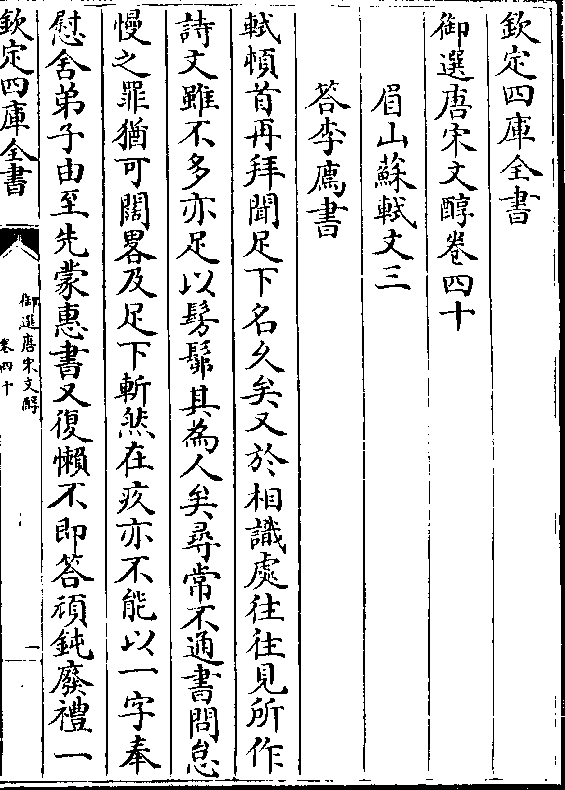 欽定四庫全書
御選唐宋文醇卷四十
眉山蘇軾文三
答李廌書
軾頓首再拜聞足下名久矣又於相識處往往見所作
詩文雖不多亦足以髣髴其為人矣尋常不通書問怠
慢之罪猶可闊畧及足下斬然在疚亦不能以一字奉
慰舍弟子由至先蒙惠書又復懶不即答頑鈍廢禮一
欽定四庫全書
御選唐宋文醇
卷四十
一